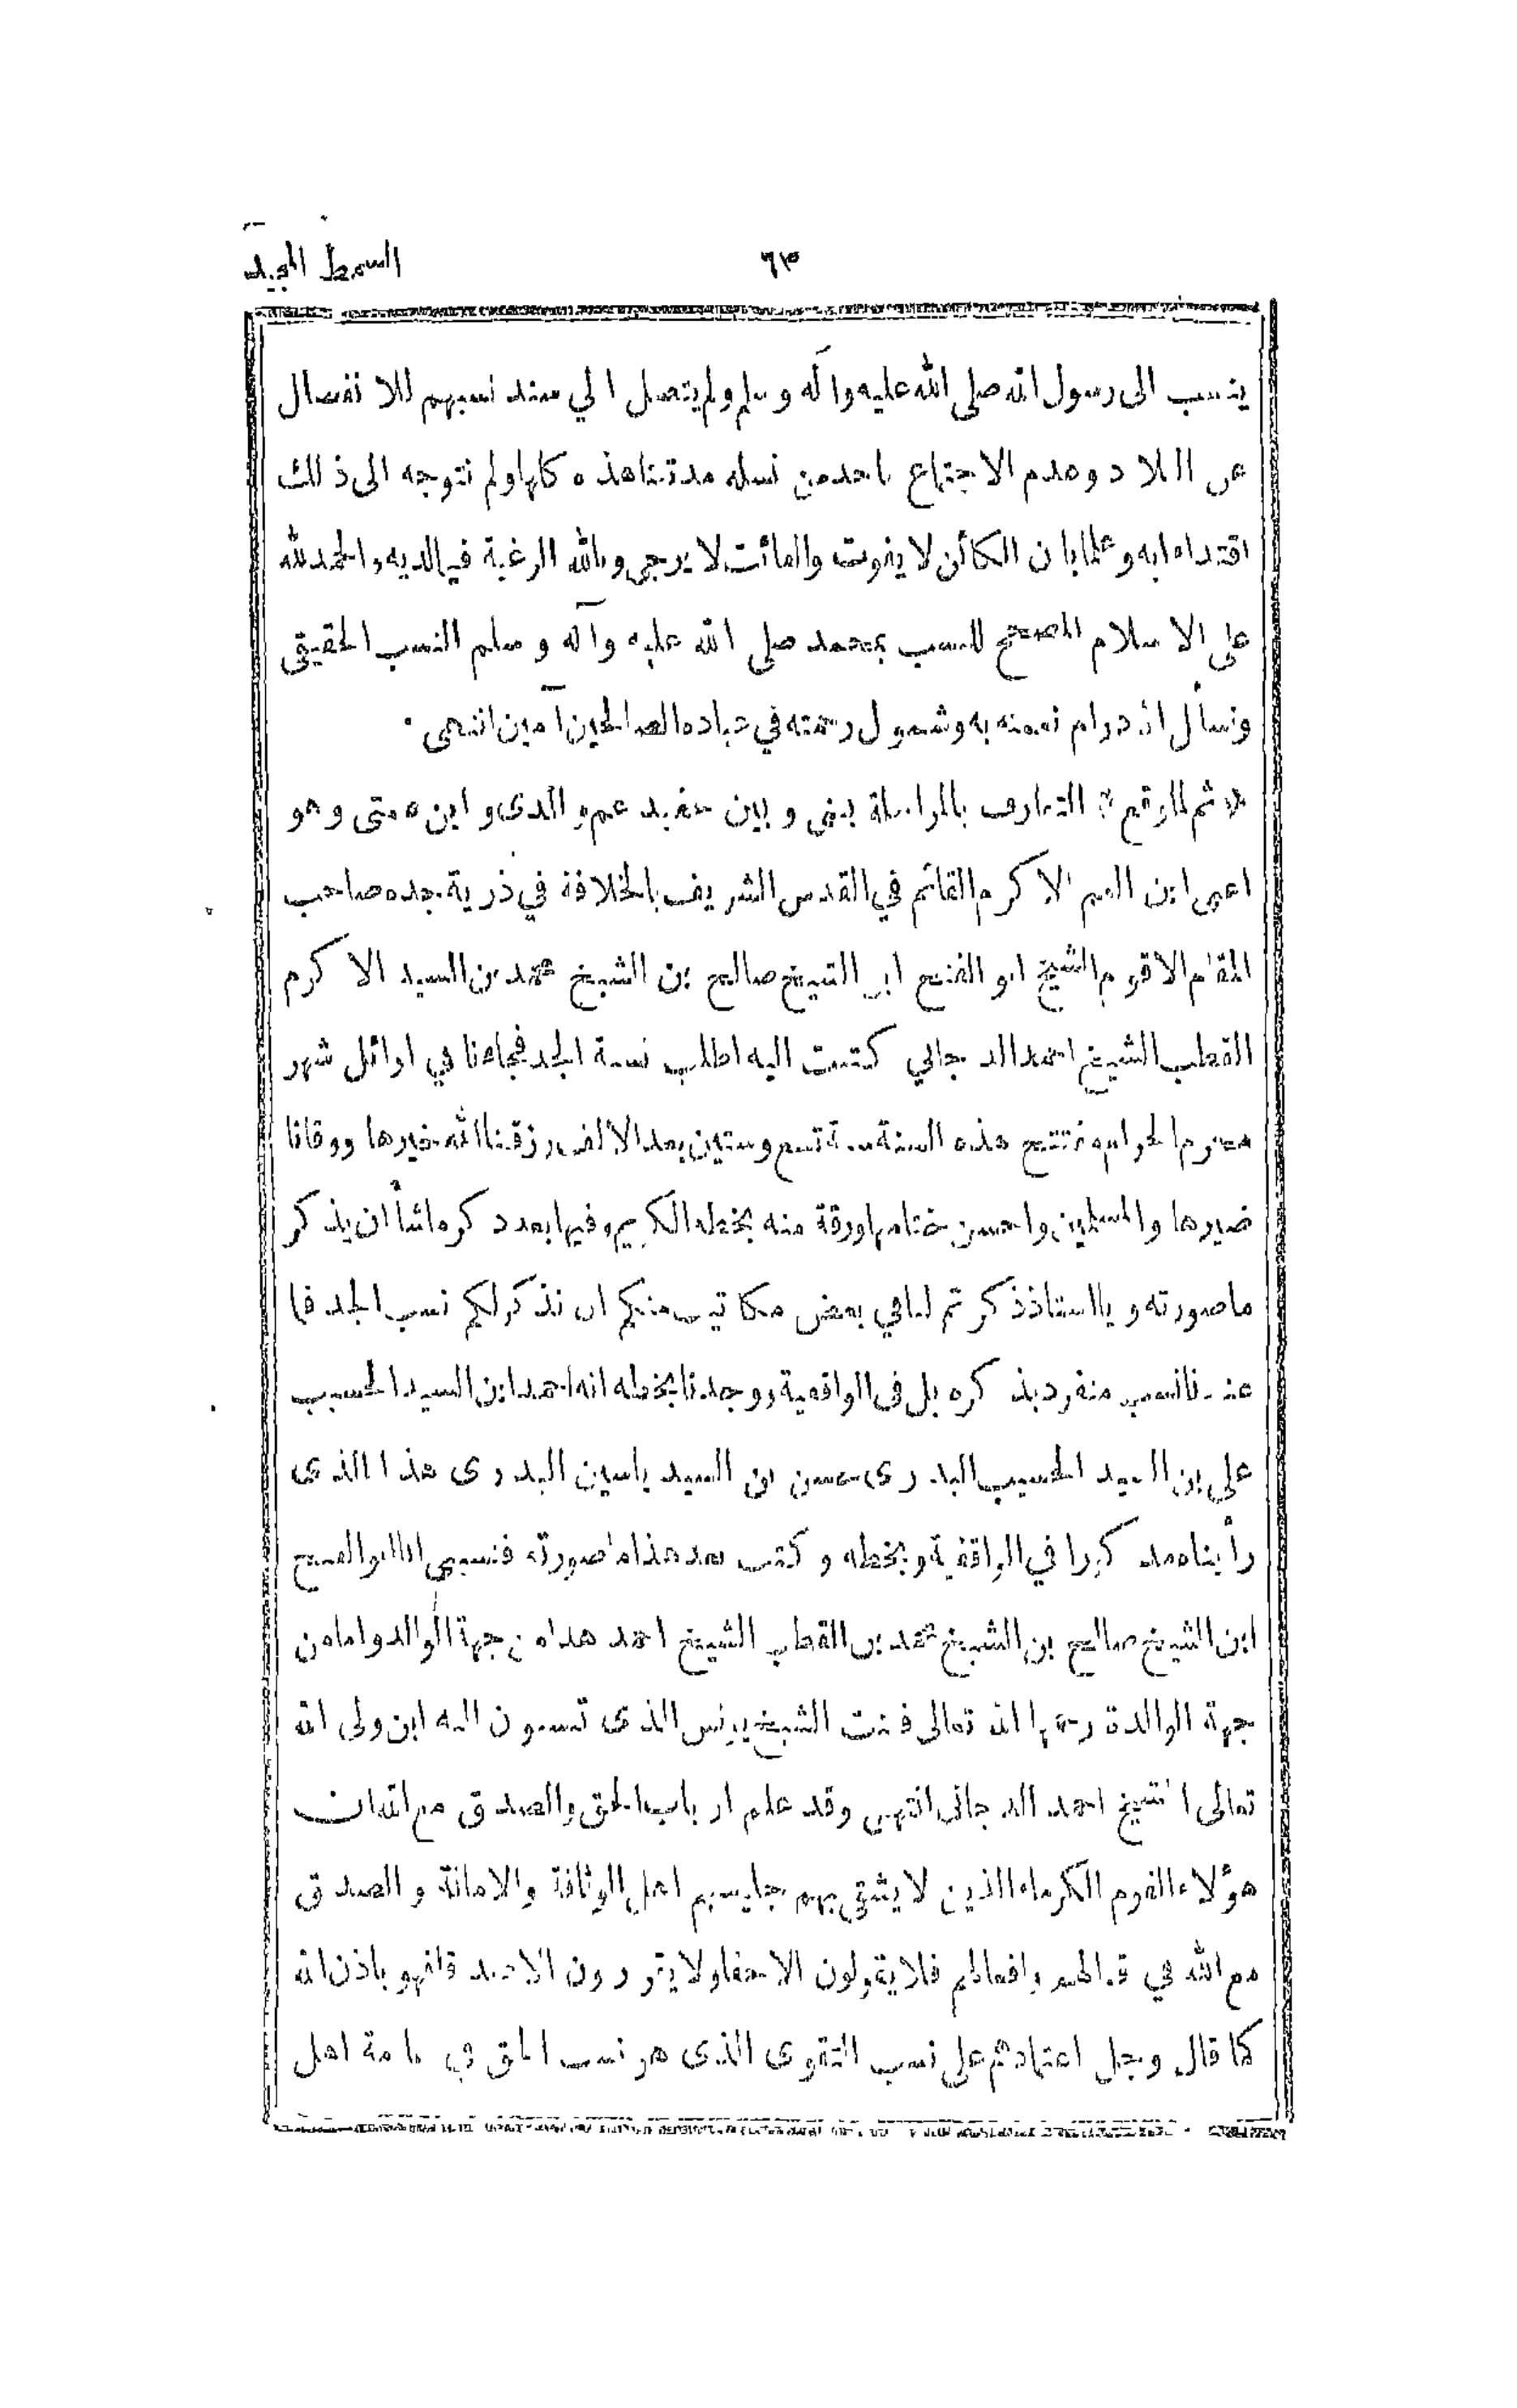 السمط المجيد
٦٣
ينسب الى رسول الله صلى الله عليه وآله وسلم ولم يتصل الي سند نسبهم للانفصال
عن البلاد وعدم الاجتماع باحد من نسله مدتنا هذه كلها ولم نتوجه الى ذلك
اقتداء به وعلما بان الكائن لا يفوت والفائت لا يرجى وبالله الرغبة فيما لديه والحمد لله
على الاسلام المصحح للنسب بمحمد صلى الله عليه وآله وسلم النسب الحقيقي
ونسأل الله دوام نعمته به وشمول رحمته في عباده الصالحين آمين انتهى
ثم لما وقع التعارف بالمراسلة بيني وبين حفيد عم والدي وابن عمتى وهو
اعنى ابن العم الاكرم القائم في القدس الشريف بالخلافة في ذرية جده صاحب
المقام الاقوم الشيخ ابو الفتح ابن الشيخ صالح بن الشيخ محمد بن السيد الاكرم
القطب الشيخ احمد الدجاني كتبت اليه اطلب نسبة الجد فجاءنا في اوائل شهر
محرم الحرام مفتتح هذه السنة سنة تسع وستين بعد الالف رزقنا الله خيرها ووقانا
ضيرها والمسلمين واحسن ختامها ورقة منه بخطه الكريم وفيها بعد ذكر ما شأ ان يذكر
ما صورته ويا استاذ ذكرتم لنا في بعض مكاتيب منكم ان نذكر لكم نسب الجد فما
عندنا نسب منفرد بذكره بل في الواقفية وجدنا بخطه انه احمد ابن السيد الحسيب
علي بن السيد الحسيب البدرى حسن بن السيد ياسين البدرى هذا الذى
رأيناه مذكورا في الواقفية وبخطه وكتب بعد هذا ما صورته فنسبي انا ابو الفتح
ابن الشيخ صالح بن الشيخ محمد بن القطب الشيخ احمد هذا من جهة الوالد واما من
جهة الوالدة رحمها الله تعالى فبنت الشيخ يونس الذى تنسبون اليه ابن ولى الله
تعالى الشيخ احمد الدجانى انتهى وقد علم ارباب الحق والصدق مع الله ان
هؤلاء القوم الكرماء الذين لا يشقى بهم جليسهم اهل الوثاقة والامانة والصدق
مع الله في اقوالهم وافعالهم فلا يقولون الا حقا ولا يتررون الا باذن الله
كما قال وجل اعتمادهم على نسب التقوى الذى هو نسب الحق في عامة اهل